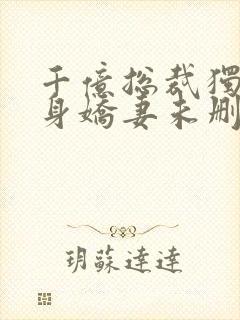 千億总裁獨
身嬌妻未删
玥蘇達達